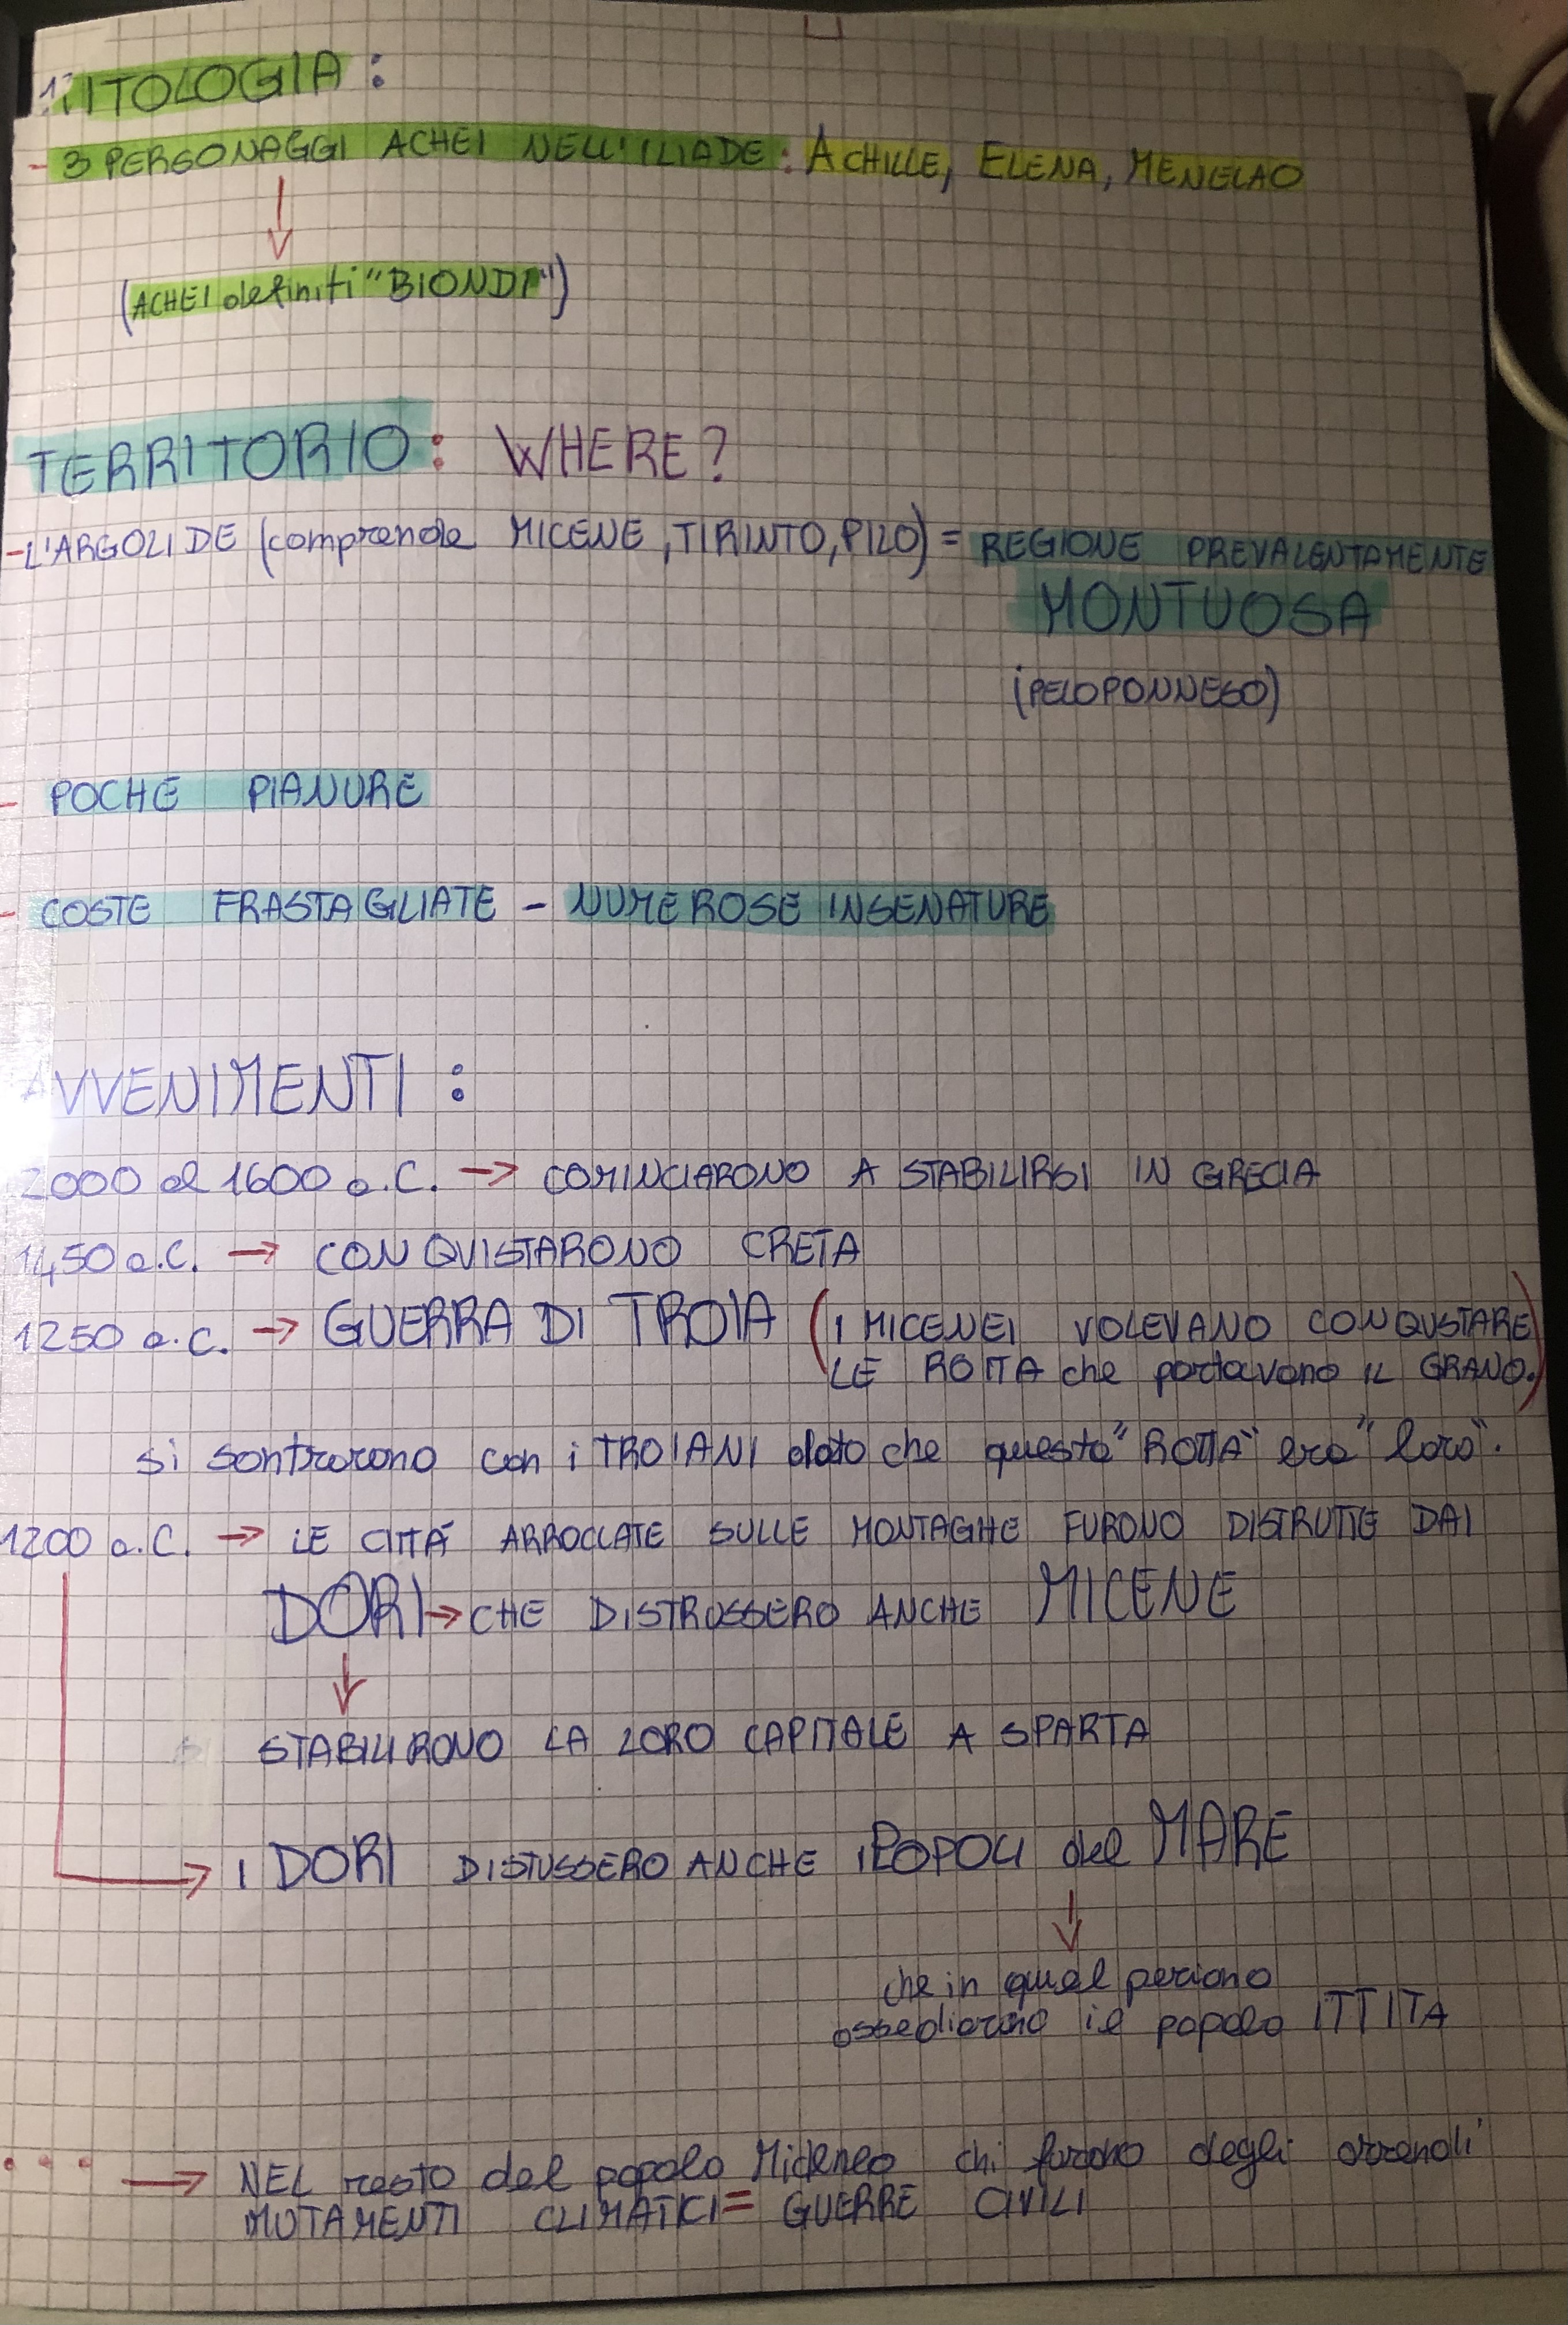 MITOLOGIA:
- 3 PERSONAGGI ACHEI NELL'ILIADE: ACHILLE, ELENA, MENELAO
(ACHEI definiti "BIONDI")
TERRITORIO: WHERE?
- L'ARGOLIDE (comprende MICENE, TIRINTO, PILO) = REGIONE PREVALENTAMENTE
MONTUOSA
(PELOPONNESO)
- POCHE PIANURE
- COSTE FRASTAGLIATE - NUMEROSE INSENATURE
AVVENIMENTI:
2000 al 1600 a.C. → COMINCIARONO A STABILIRSI IN GRECIA
1450 a.C. → CONQUISTARONO CRETA
1250 a.C. → GUERRA DI TROIA (I MICENEI VOLEVANO CONQUSTARE
LE ROTTA che portavano IL GRANO.)
si sontrarono con i TROIANI dato che questa "ROTTA" era "loro".
1200 a.C. → LE CITTÁ ARROCCATE SULLE MONTAGHE FURONO DISTRUTTE DAI
DORI → CHE DISTRUSSERO ANCHE MICENE
STABILIRONO LA LORO CAPITALE A SPARTA
I DORI DISTUSSERO ANCHE i POPOLI del MARE
che in quel periono
assediarono il popolo ITTITA
... → NEL resto del popolo Miceneo chi furono degli orrendi
MUTAMENTI CLIMATICI = GUERRE CIVILI